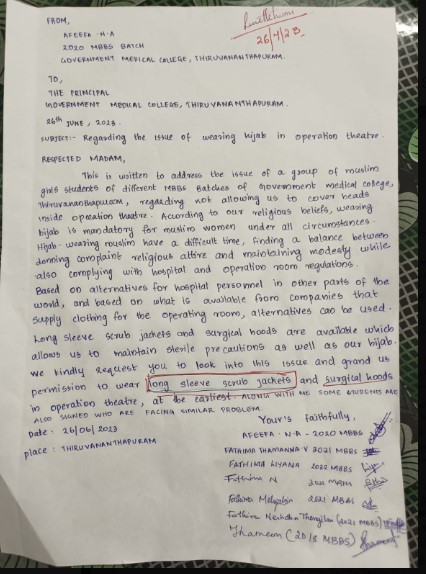 FROM,
AFEEFA . N . A
2020 MBBS BATCH
GOVERNMENT MEDICAL COLLEGE, THIRUVANANTHAPURAM.
26/7/23
TO,
THE PRINCIPAL
GOVERNMENT MEDICAL COLLEGE, THIRUVANANTHAPURAM.
26th JUNE, 2023.
SUBJECT:- Regarding the issue of wearing hijab in operation theatre.
RESPECTED MADAM,
This is written to address the issue of a group of muslim
girls students of different MBBS Batches of Government medical college,
Thiruvananthapuram, regarding not allowing us to cover heads
inside operation theatre. According to our religious beliefs, wearing
hijab is mandatory for muslim women under all circumstances.
Hijab-wearing muslim have a difficult time, finding a balance between
donning complaint religious attire and maintaining modesty while
also complying with hospital and operation room regulations.
Based on alternatives for hospital personnel in other parts of the
world, and based on what is available from companies that
supply clothing for the operating room, alternatives can be used.
Long sleeve scrub jackets and surgical hoods are available which
allows us to maintain sterile precautions as well as our hijab.
We kindly request you to look into this issue and grand us
permission to wear long sleeve scrub jackets and surgical hoods
in operation theatre, at the earliest. ALONG WITH ME SOME STUDENTS ARE
ALSO SIGNED WHO ARE FACING SIMILAR PROBLEM.
Your's faithfully,
Date : 26/06/2023
AFEEFA . N . A - 2020 MBBS
place : THIRUVANANTHAPURAM
FATHIMA THAMANNA V 2021 MBBS
FATHIMA LIYANA 2022 MBBS
Fathima N 2021 MBBS
Fathima 2021 MBBS
Fathima (2021 MBBS)
Thameem (2018 MBBS)